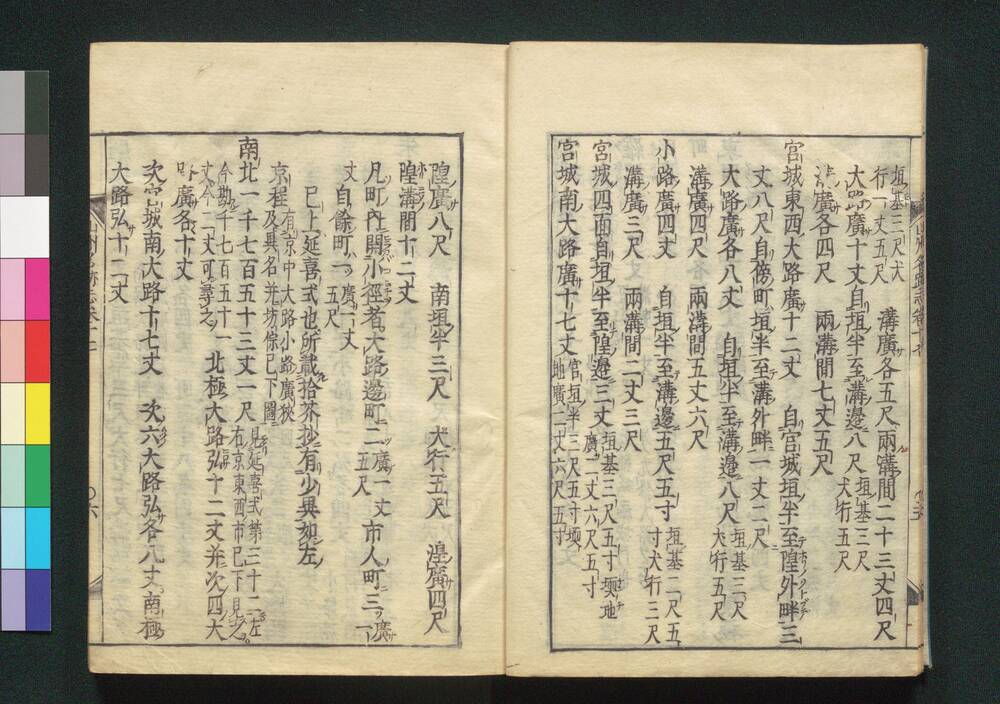 垣基三尺犬
行一丈五尺　溝廣各五尺兩溝間二十三丈四尺
大宮廣十丈自垣半至溝邊八尺垣基三尺
犬行五尺
溝廣各四尺　兩溝間七丈五尺
宮城東西大路廣十二丈　自宮城垣半至隍外畔三
丈八尺自傍町垣半至溝外畔一丈二尺
大路廣各八丈　自垣半至溝邊八尺垣基三尺
犬行五尺
溝廣四尺兩溝間五丈六尺
小路廣四丈　自垣半至溝邊五尺五寸垣基二尺五
寸犬行三尺
溝廣三尺　兩溝間二丈三尺
宮城四面自垣半至隍邊三丈垣基三尺五寸壖地
廣二丈六尺五寸
宮城南大路廣十七丈宮垣半三尺五寸壖
地廣二丈六尺五寸
隍廣八尺　南垣半三尺　犬行五尺　湟廣四尺
隍溝間十二丈
凡町内開小徑者大路邊町二廣一丈
五尺市人町三廣一
丈自餘町一廣一丈
五尺
已上延喜式也所載拾芥抄有少異如左
京程有京中大路小路廣狹
及異名并坊條已下圖見延喜式第三十二左
右京東西市已下見之
南北一千七百五十三丈一尺
今勘千七百五十一
丈今二丈可尋之北極大路弘十二丈并次四大
路廣各十丈
次宮城南大路十七丈　次六大路弘各八丈南極
大路弘十二丈